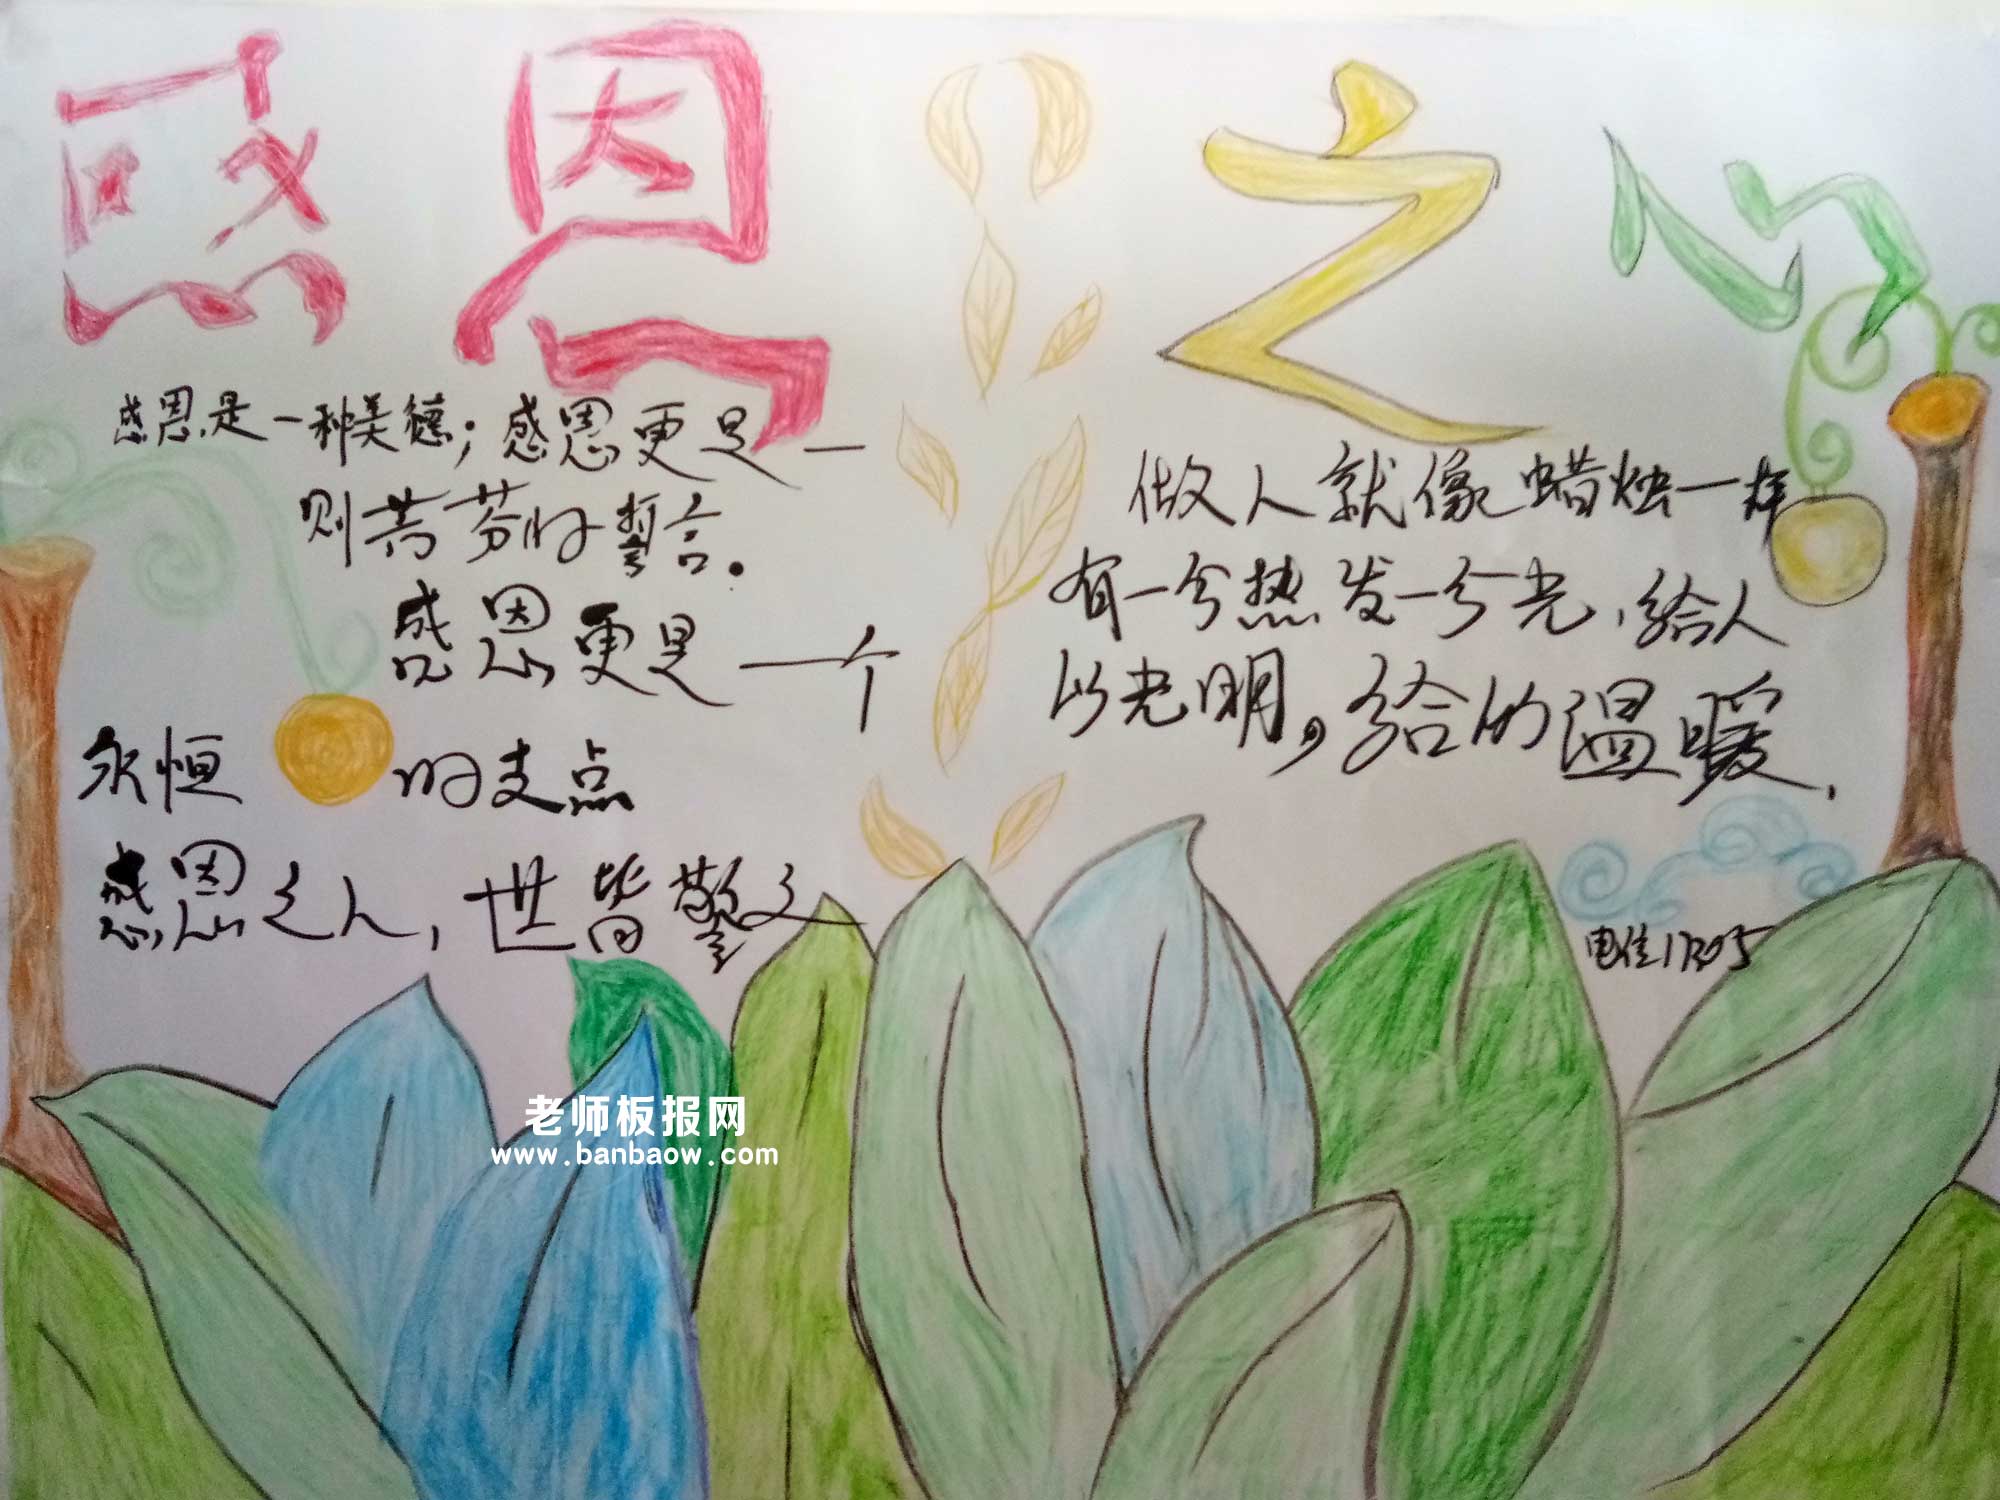 感恩之心
感恩是一种美德；感恩更是一
则芬芳的誓言.
感恩更是一个
永恒的支点
感恩之人，世皆敬之
做人就像蜡烛一样
有一分热发一分光，给人
以光明，给的温暖.
电信17305
老师板报网
www.banbaow.com